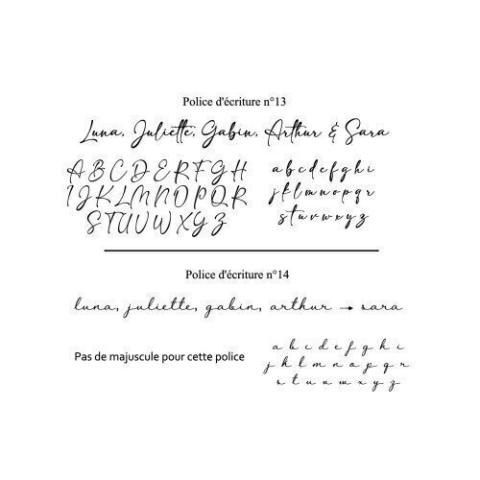 Police d'écriture n°13
Luna, Juliette, Gabin, Arthur & Sara
A B C D E R F G H
I J K L M N O P Q R
S T U V W X Y Z
a b c d e f g h i
j k l m n o p q r
s t u v w x y z
Police d'écriture n°14
luna, juliette, gabin, arthur → sara
Pas de majuscule pour cette police
a b c d e f g h i
j k l m n o p q r
s t u v w x y z